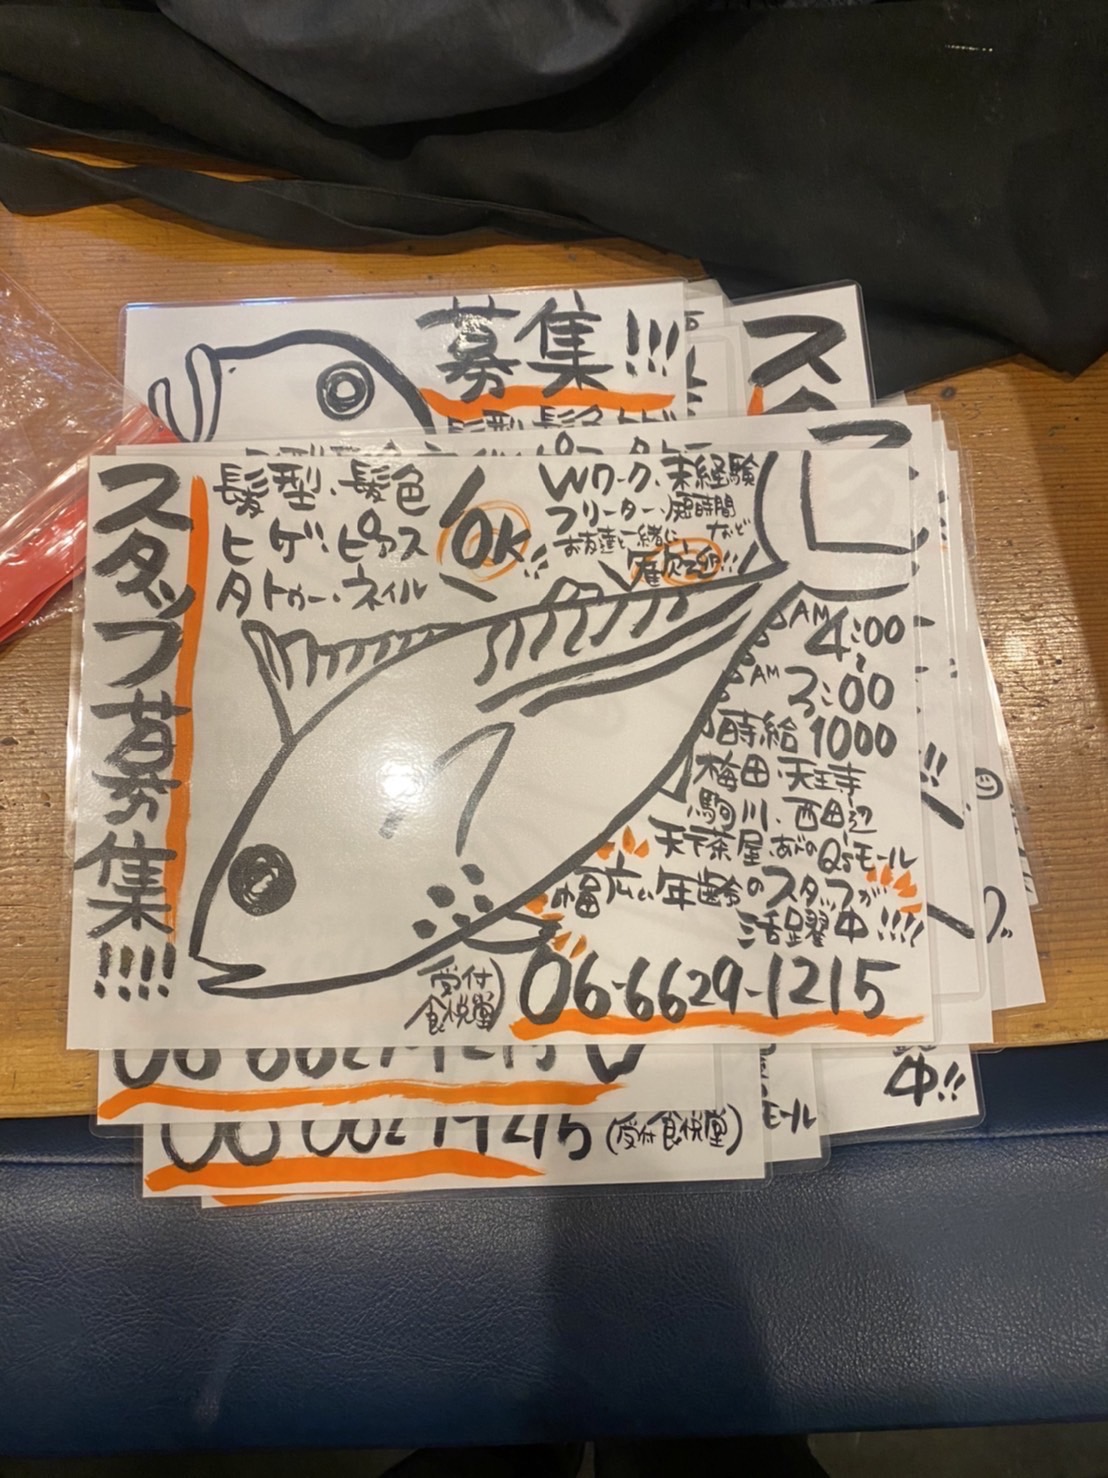 募集!!!
ス
スタッフ募集!!!!
髪型・髪色
ヒゲ・ピアス
タトゥー・ネイル
OK!!
Wワーク・未経験
フリーター・短時間
お友達と一緒になど
大歓迎!!
AM 4:00
〜
AM 3:00
時給1000
梅田・天王寺
駒川・西田辺
天下茶屋・あべのQ'sモール
幅広い年齢のスタッフが
活躍中!!!!
受付
06-6629-1215
中!!
モール
06-6629-1215
(受付